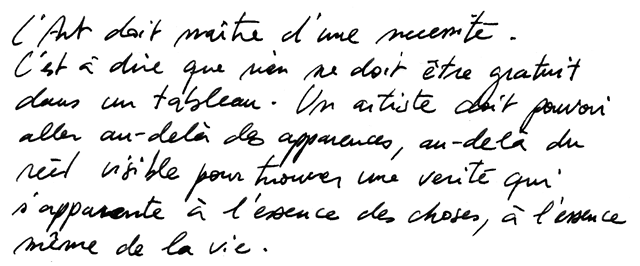 L'Art doit naître d'une necessité.
C'est à dire que rien ne doit être gratuit
dans un tableau. Un artiste doit pouvoir
aller au-delà des apparences, au-delà du
réel visible pour trouver une verité qui
s'apparente à l'essence des choses, à l'essence
même de la vie.